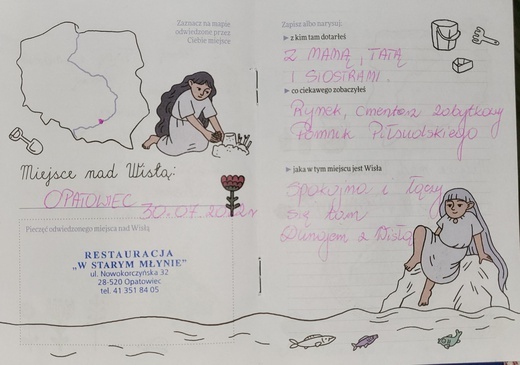 Zaznacz na mapie
odwiedzone przez
Ciebie miejsce
Miejsce nad Wisłą:
OPATOWIEC 30.07.2022r
Pieczęć odwiedzonego miejsca nad Wisłą
RESTAURACJA
„W STARYM MŁYNIE"
ul. Nowokorczyńska 32
28-520 Opatowiec
tel. 41 351 84 05
Zapisz albo narysuj:
▶ z kim tam dotarłeś
Z MAMĄ, TATĄ
I SIOSTRAMI.
▶ co ciekawego zobaczyłeś
Rynek, cmentarz zabytkowy
Pomnik Piłsudskiego
▶ jaka w tym miejscu jest Wisła
Spokojna i łączy
się tam
Dunajem z Wisłą